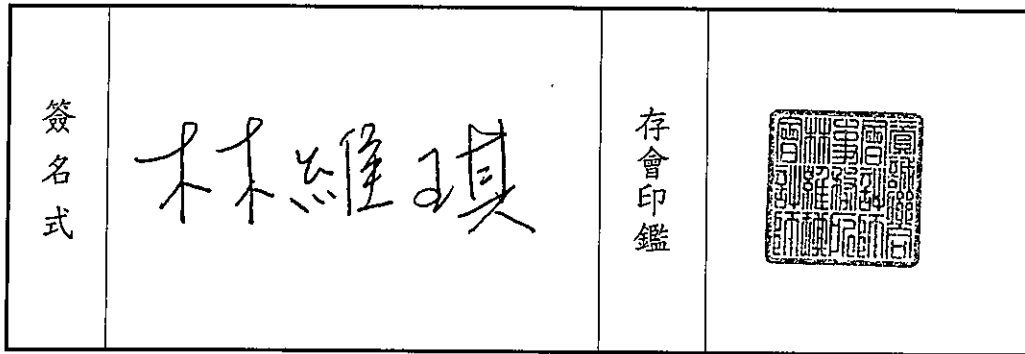 簽名式
林維琪
存會印鑑
會計師
事務所
林維琪
會計師